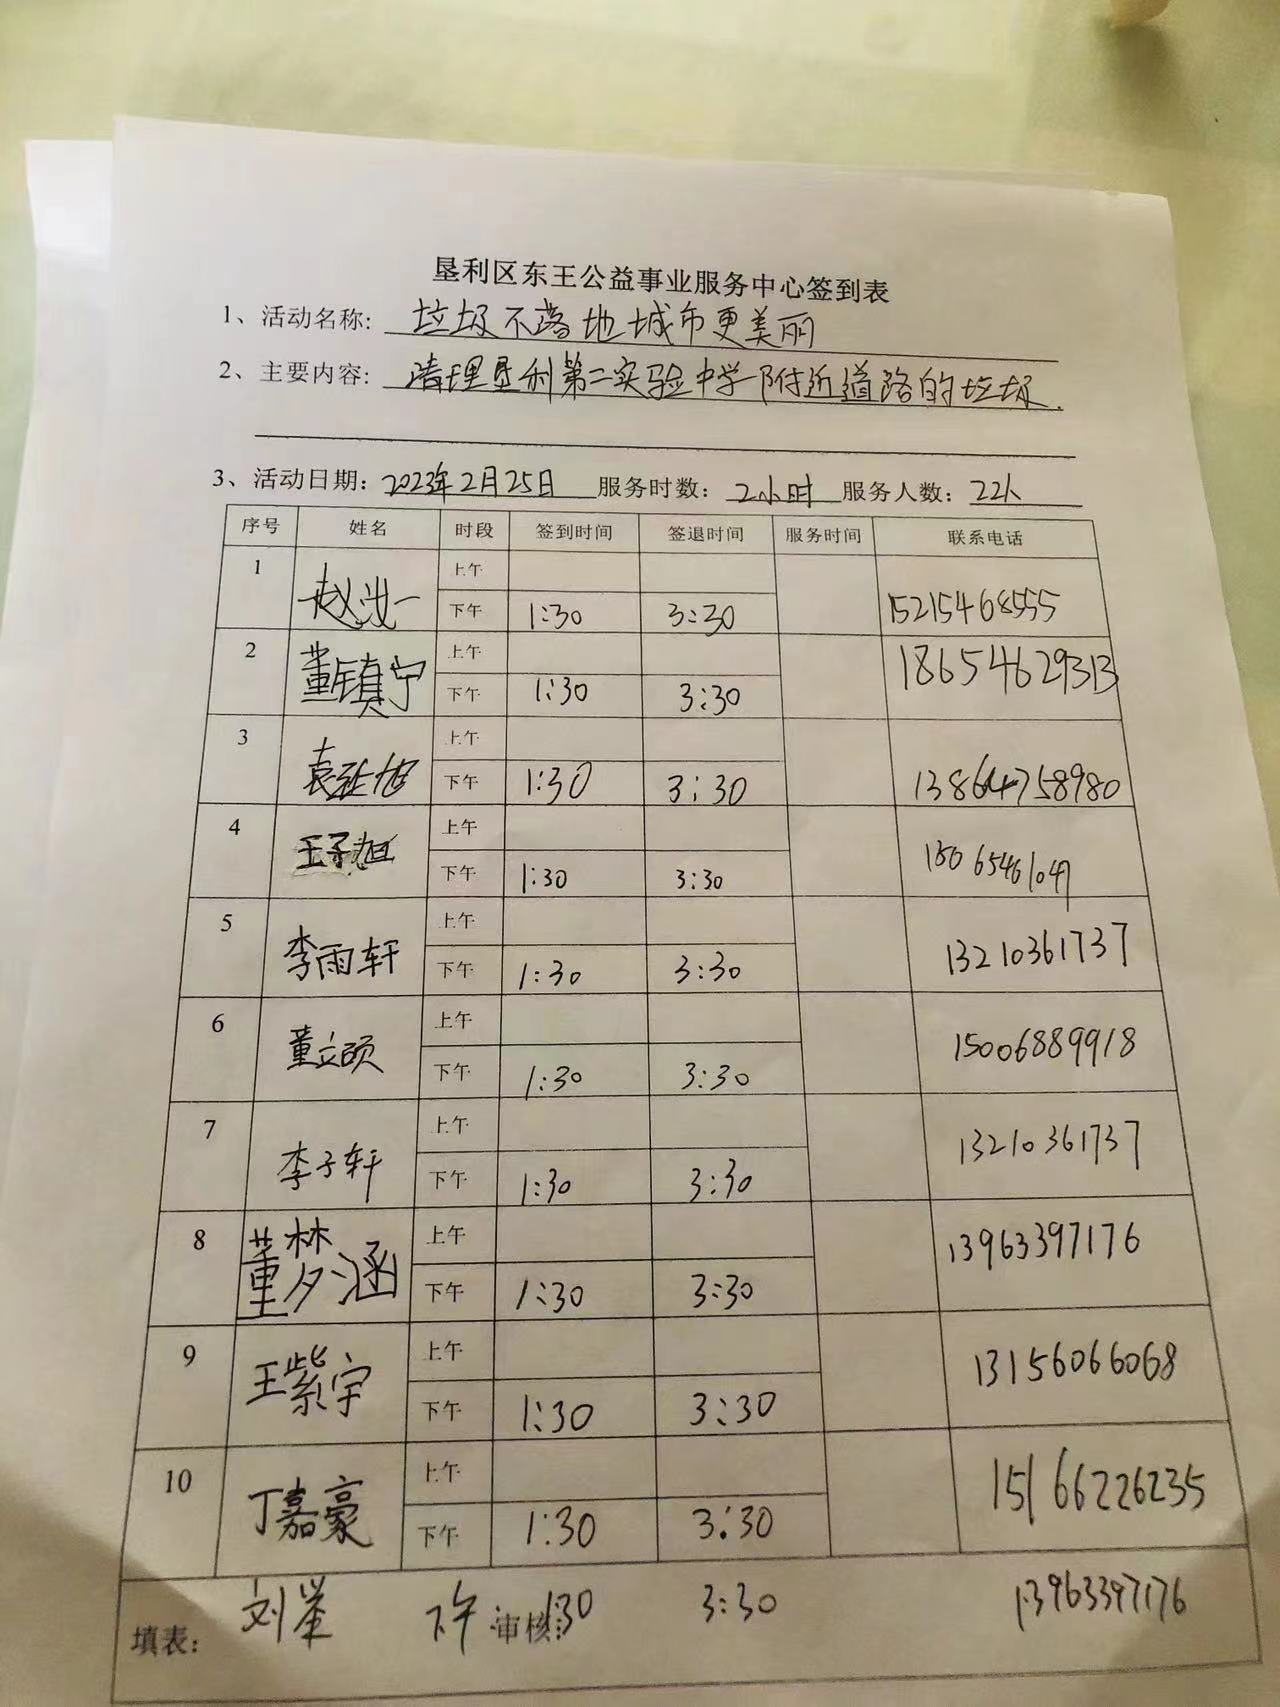 垦利区东王公益事业服务中心签到表
1、活动名称: 垃圾不落地城市更美丽
2、主要内容: 清理垦利第二实验中学附近道路的垃圾.
3、活动日期: 2023年2月25日 服务时数: 2小时 服务人数: 22人
序号 姓名 时段 签到时间 签退时间 服务时间 联系电话
1 赵 一 上午
下午 1:30 3:30 15215468555
2 董镇宁 上午
下午 1:30 3:30 18654629313
3 袁 旭 上午
下午 1:30 3:30 13864758980
4 王子旭 上午
下午 1:30 3:30 15065461047
5 李雨轩 上午
下午 1:30 3:30 13210361737
6 董立硕 上午
下午 1:30 3:30 15006889918
7 李子轩 上午
下午 1:30 3:30 13210361737
8 董梦涵 上午
下午 1:30 3:30 13963397176
9 王紫宇 上午
下午 1:30 3:30 13156066068
10 丁嘉豪 上午
下午 1:30 3:30 15166226235
填表: 刘 下午 审核: 1:30 3:30 13963397176